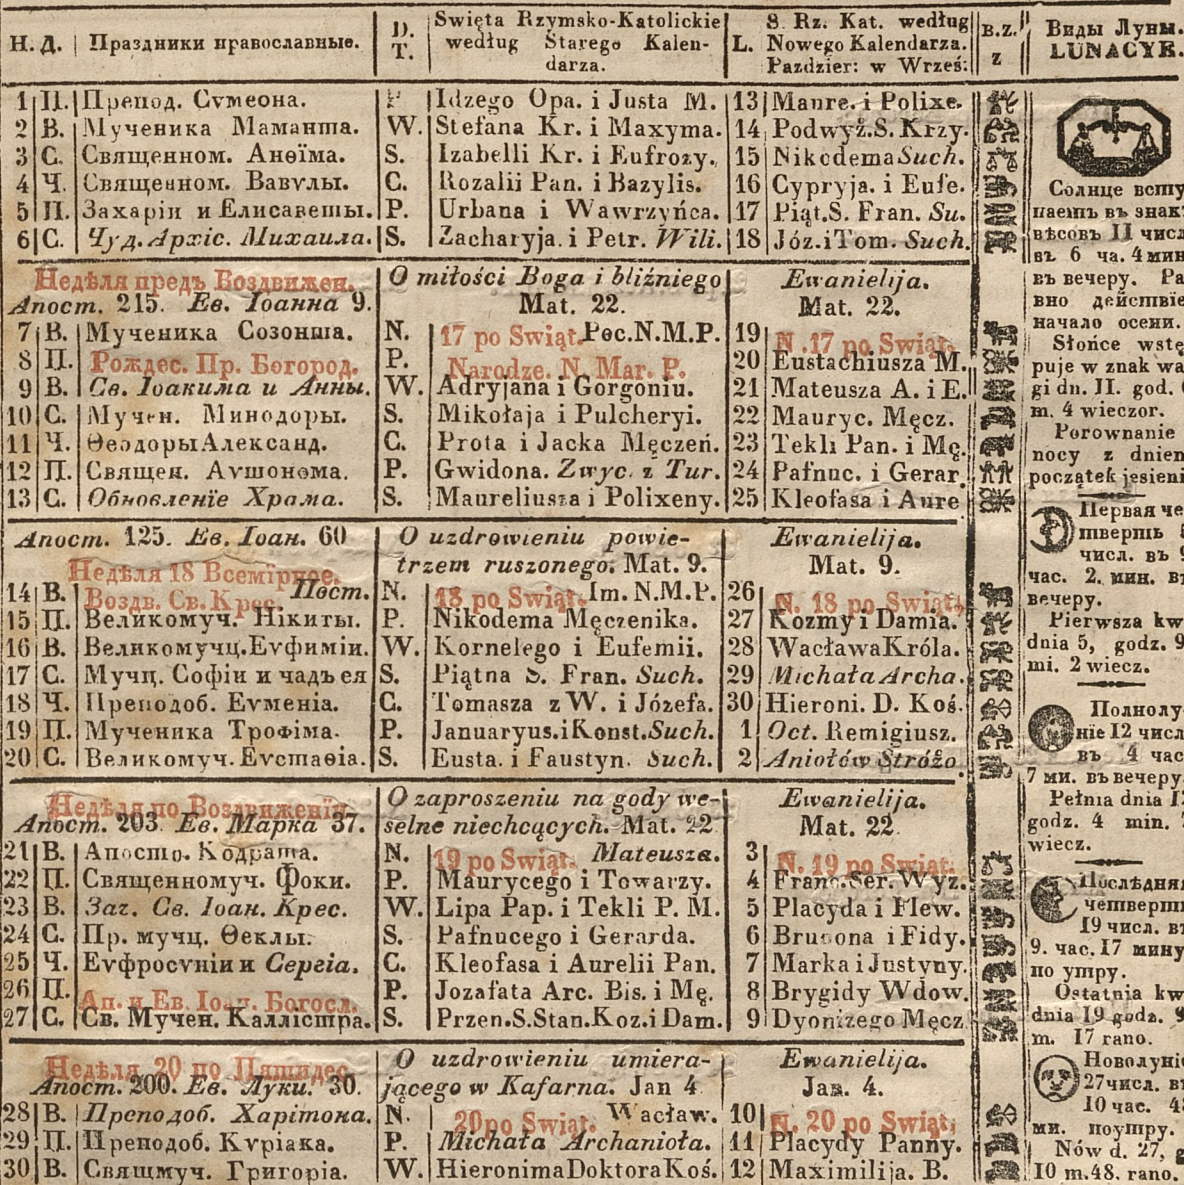 Н. Д. Праздники православные.
D. T.
Święta Rzymsko-Katolickie
według Starego Kalen-
darza.
L.
S. Rz. Kat. według
Nowego Kalendarza.
Pazdzier: w Wrześ:
B.Z.
z
Виды Луны.
LUNACYE.
1 П. Препод. Сѵмеона. P Idzego Opa. i Justa M. 13 Maure. i Polixe.
2 В. Мученика Маманта. W. Stefana Kr. i Maxyma. 14 Podwyż.S. Krzy.
3 С. Священном. Анѳїма. S. Izabelli Kr. i Eufrozy. 15 Nikodema Such.
4 Ч. Священном. Вавѵлы. C. Rozalii Pan. i Bazylis. 16 Cypryja. i Eufe.
5 П. Захарїи и Елисаветы. P. Urbana i Wawrzyńca. 17 Piąt.S. Fran. Su.
6 С. Чуд. Архіс. Михаила. S. Zacharyja. i Petr. Wili. 18 Józ.i Tom. Such.
Недѣля предъ Воздвижен.
Апост. 215. Ев. Іоанна 9.
O miłości Boga i bliźniego
Mat. 22.
Ewanielija.
Mat. 22.
7 В. Мученика Созонта. N. 17 po Swiąt. Poc.N.M.P. 19 N. 17 po Swiąt.
8 П. Рождес. Пр. Богород. P. Narodze. N. Mar. P. 20 Eustachiusza M.
9 В. Св. Іоакима и Анны. W. Adryjana i Gorgoniu. 21 Mateusza A. i E.
10 С. Мучен. Минодоры. S. Mikołaja i Pulcheryi. 22 Mauryc. Męcz.
11 Ч. Ѳеодоры Александ. C. Prota i Jacka Męczeń. 23 Tekli Pan. i Mę.
12 П. Священ. Аѵтонома. P. Gwidona. Zwyc. z Tur. 24 Pafnuc. i Gerar.
13 С. Обновленїе Храма. S. Maureliusza i Polixeny. 25 Kleofasa i Aure
Апост. 125. Ев. Іоан. 60
Недѣля 18 Всемїрное.
O uzdrowieniu powie-
trzem ruszonego. Mat. 9.
Ewanielija.
Mat. 9.
14 В. Воздв. Св. Крес. Пост. N. 18 po Swiąt. Im. N.M.P. 26 N. 18 po Swiąt.
15 П. Великомуч. Нікиты. P. Nikodema Męczenika. 27 Kozmy i Damia.
16 В. Великомучц. Еѵфиміи. W. Kornelego i Eufemii. 28 Wacława Króla.
17 С. Мучц. Софїи и чадъ ея S. Piątna S. Fran. Such. 29 Michała Archa.
18 Ч. Преподоб. Еѵменїа. C. Tomasza z W. i Józefa. 30 Hieroni. D. Koś.
19 П. Мученика Трофїма. P. Januaryus.i Konst. Such. 1 Oct. Remigiusz.
20 С. Великомуч. Еѵстаѳїа. S. Eusta. i Faustyn. Such. 2 Aniołów Stróżo
Недѣля по Воздвиженїи.
Апост. 203. Ев. Марка 37.
O zaproszeniu na gody we-
selne niechcących. Mat. 22
Ewanielija.
Mat. 22
21 В. Апосто. Кодрата. N. 19 po Swiąt. Mateusza. 3 N. 19 po Swiąt.
22 П. Священномуч. Фоки. P. Maurycego i Towarzy. 4 Franc. Ser. Wyz.
23 В. Зач. Св. Іоан. Крес. W. Lipa Pap. i Tekli P. M. 5 Placyda i Flew.
24 С. Пр. мучц. Ѳеклы. S. Pafnucego i Gerarda. 6 Brunona i Fidy.
25 Ч. Еѵфросѵнїи и Сергіа. C. Kleofasa i Aurelii Pan. 7 Marka i Justyny.
26 П. Ап. и Ев. Іоан. Богосл. P. Jozafata Arc. Bis. i Mę. 8 Brygidy Wdow.
27 С. Св. Мучен. Каллїстра. S. Przen.S.Stan.Koz.i Dam. 9 Dyonizego Męcz
Недѣля 20 по Пятидес.
Апост. 200. Ев. Луки. 30.
O uzdrowieniu umiera-
jącego w Kafarna. Jan 4
Ewanielija.
Jan. 4.
28 В. Преподоб. Харїтона. N. 20 po Swiąt. Wacław. 10 N. 20 po Swiąt.
29 П. Преподоб. Кѵрїака. P. Michała Archanioła. 11 Placydy Panny.
30 В. Свящмуч. Григорїа. W. Hieronima Doktora Koś. 12 Maximilija. B.
Солнце всту
паетъ въ знак
вѣсовъ 11 числ
въ 6 ча. 4 мин
въ вечеру. Ра
вно действїе
начало осени.
Słońce wstę
puje w znak wa
gi dn. 11. god. 6
m. 4 wieczor.
Porownanie
nocy z dniem
początek jesieni
Первая че
тверть 5
числ. въ 9
час. 2. мин. въ
вечеру.
Pierwsza kw
dnia 5, godz. 9
mi. 2 wiecz.
Полнолу
нїе 12 числ
въ 4 час
7 ми. въ вечеру.
Pełnia dnia 12
godz. 4 min. 7
wiecz.
Послѣдняя
четверть
19 числ. въ
9. час. 17 мину
по утру.
Ostatnia kw
dnia 19 godz. 9
m. 17 rano.
Новолунїе
27 числ. въ
10 час. 48
ми. поутру.
Nów d. 27, g
10 m. 48. rano.